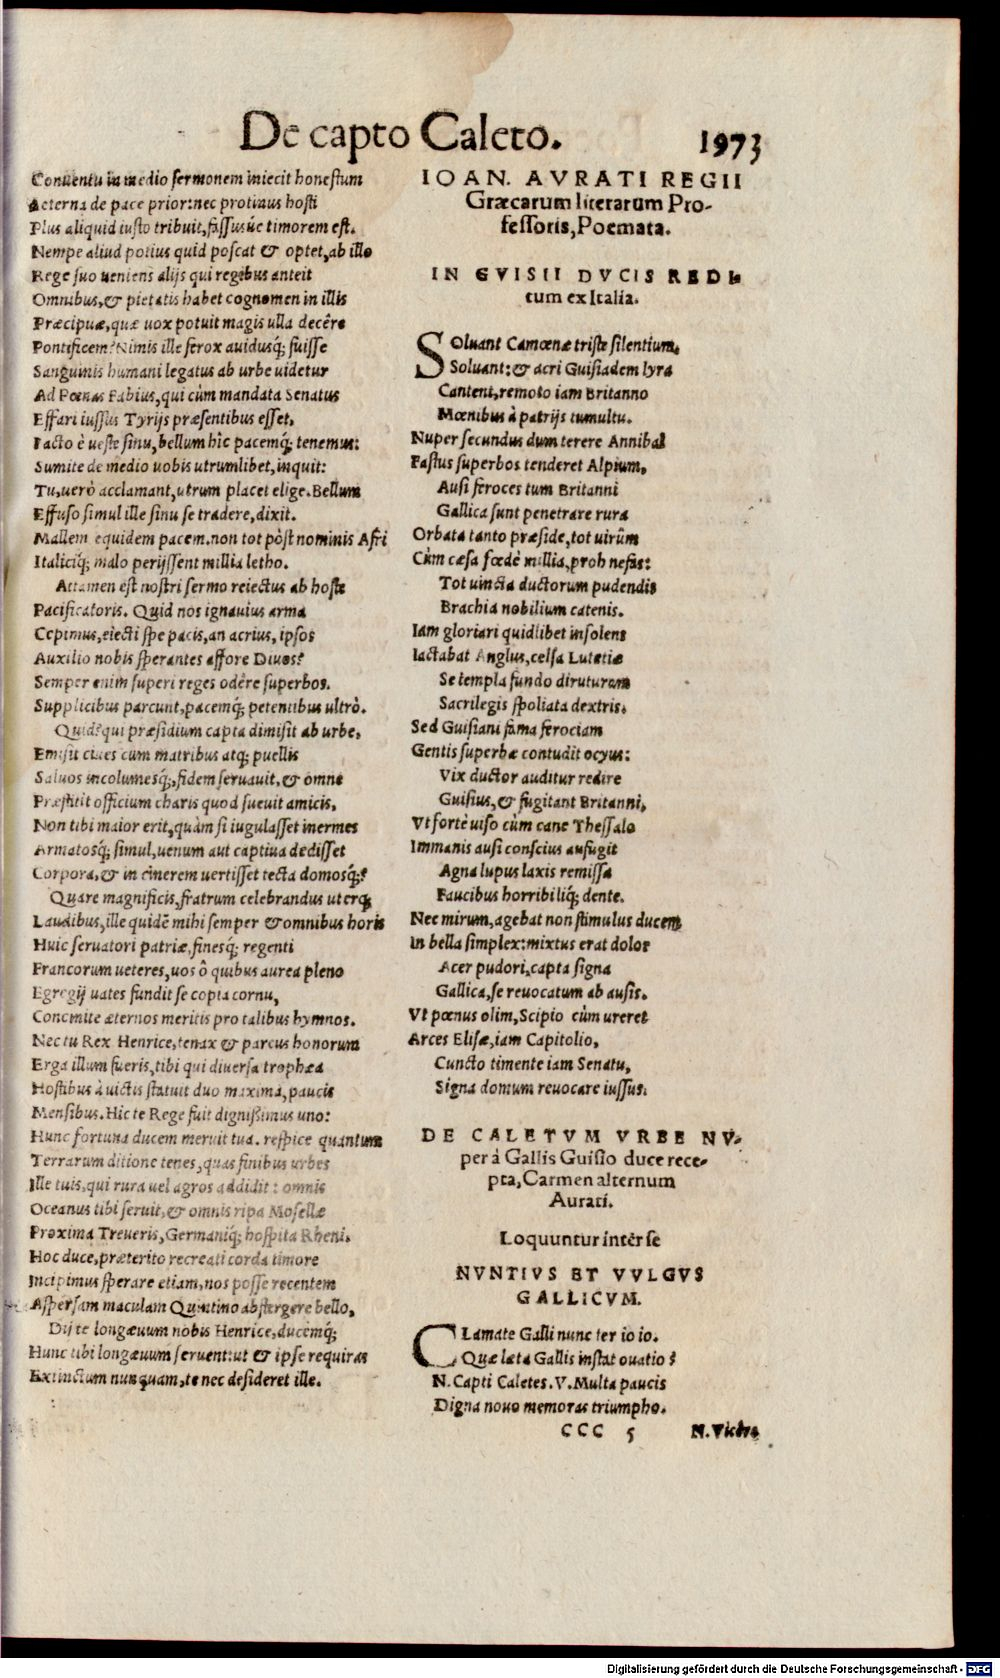 De capto Caleto. 1973
Conuentu in medio sermonem iniecit honestum
Aeterna de pace prior: nec protinus hosti
Plus aliquid iusto tribuit, fassusúe timorem est.
Nempe aliud potius quid poscat & optet, ab illo
Rege suo ueniens alijs qui regibus anteit
Omnibus, & pietatis habet cognomen in illis
Præcipuæ, quæ uox potuit magis ulla decêre
Pontificem? Nimis ille ferox auidusq́; fuisse
Sanguinis humani legatus ab urbe uidetur
Ad Pœnos Fabius, qui cùm mandata Senatus
Effari iussus Tyrijs præsentibus esset,
Facto è ueste sinu, bellum hîc pacemq́; tenemus:
Sumite de medio uobis utrumlibet, inquit:
Tu, uerò acclamant, utrum placet elige. Bellum
Effuso simul ille sinu se tradere, dixit.
Mallem equidem pacem. non tot pòst nominis Afri
Italiciq́; malo perijssent millia letho.
Attamen est nostri sermo reiectus ab hoste
Pacificatoris. Quid nos ignauius arma
Cepimus, eiecti spe pacis, an acrius, ipsos
Auxilio nobis sperantes affore Diuos?
Semper enim superi reges odêre superbos.
Supplicibus parcunt, pacemq́; petentibus ultrò.
Quid? qui præsidium capta dimisit ab urbe,
Emisit ciues cum matribus atq; puellis
Saluos incolumesq́;, fidem seruauit, & omne
Præstitit officium charis quod sueuit amicis,
Non tibi maior erit, quàm si iugulasset inermes
Armatosq́; simul, uenum aut captiua dedisset
Corpora, & in cinerem uertisset tecta domosq́;?
Quare magnificis, fratrum celebrandus uterq;
Laudibus, ille quidẽ mihi semper & omnibus horis
Huic seruatori patriæ, finesq́; regenti
Francorum ueteres, uos ô quibus aurea pleno
Egregij uates fundit se copia cornu,
Concinite æternos meritis pro talibus hymnos.
Nec tu Rex Henrice, tenax & parcus honorum
Erga illum fueris, tibi qui diuersa trophæa
Hostibus à uictis statuit duo maxima, paucis
Mensibus. Hic te Rege fuit dignissimus uno:
Hunc fortuna ducem meruit tua. respice quantum
Terrarum ditione tenes, quas finibus urbes
Ille tuis, qui rura uel agros addidit: omnis
Oceanus tibi seruit, & omnis ripa Mosellæ
Proxima Treueris, Germaniq́; hospita Rheni.
Hoc duce, præterito recreati corda timore
Incipimus sperare etiam, nos posse recentem
Aspersam maculam Quintino abstergere bello,
Dij te longæuum nobis Henrice, ducemq́;
Hunc tibi longæuum seruent: ut & ipse requiras
Extinctum nunquam, te nec desideret ille.
IOAN. AVRATI REGII
Græcarum literarum Pro-
fessoris, Poemata.
IN GVISII DVCIS REDI-
tum ex Italia.
SOluant Camœnæ triste silentium,
Soluant: & acri Guisiadem lyra
Cantent, remoto iam Britanno
Mœnibus à patrijs tumultu.
Nuper secundus dum terere Annibal
Fastus superbos tenderet Alpium,
Ausi feroces tum Britanni
Gallica sunt penetrare rura
Orbata tanto præside, tot uirûm
Cùm cæsa fœdè millia, proh nefas:
Tot uincta ductorum pudendis
Brachia nobilium catenis.
Iam gloriari quidlibet insolens
Iactabat Anglus, celsa Lutetiæ
Se templa fundo diruturum
Sacrilegis spoliata dextris.
Sed Guisiani fama ferociam
Gentis superbæ contudit ocyus:
Vix ductor auditur redire
Guisius, & fugitant Britanni,
Vt fortè uiso cùm cane Thessalo
Immanis ausi conscius aufugit
Agna lupus laxis remissa
Faucibus horribiliq́; dente.
Nec mirum, agebat non stimulus ducem
In bella simplex: mixtus erat dolor
Acer pudori, capta signa
Gallica, se reuocatum ab ausis.
Vt pœnus olim, Scipio cùm ureret
Arces Elisæ, iam Capitolio,
Cuncto timente iam Senatu,
Signa domum reuocare iussus.
DE CALETVM VRBE NV-
per à Gallis Guisio duce rece-
pta, Carmen alternum
Aurati.
Loquuntur intèr se
NVNTIVS ET VVLGVS
GALLICVM.
CLamate Galli nunc ter io io.
Quæ læta Gallis instat ouatio?
N. Capti Caletes. V. Multa paucis
Digna nouo memoras triumpho.
CCC 5 N. Victra
Digitalisierung gefördert durch die Deutsche Forschungsgemeinschaft - DFG